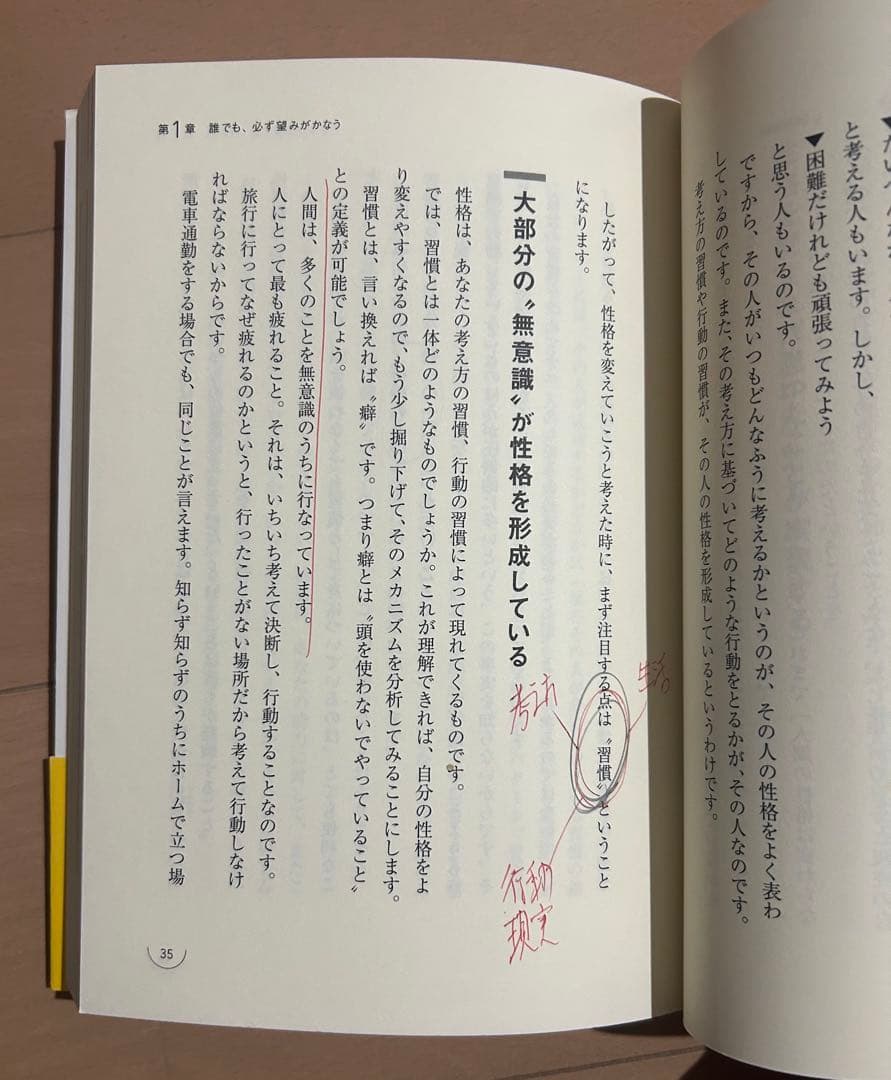 と考える人もいます。しかし、
▼困難だけれども頑張ってみよう
と思う人もいるのです。
ですから、その人がいつもどんなふうに考えるかというのが、その人の性格をよく表わ
しているのです。また、その考え方に基づいてどのような行動をとるかが、その人なのです。
考え方の習慣や行動の習慣が、その人の性格を形成しているというわけです。
第1章 誰でも、必ず望みがかなう
したがって、性格を変えていこうと考えた時に、まず注目する点は〝習慣〟ということ
になります。
生活
考え方
行動
現実
大部分の〝無意識〟が性格を形成している
性格は、あなたの考え方の習慣、行動の習慣によって現れてくるものです。
では、習慣とは一体どのようなものでしょうか。これが理解できれば、自分の性格をよ
り変えやすくなるので、もう少し掘り下げて、そのメカニズムを分析してみることにします。
習慣とは、言い換えれば〝癖〟です。つまり癖とは〝頭を使わないでやっていること〟
との定義が可能でしょう。
人間は、多くのことを無意識のうちに行なっています。
人にとって最も疲れること。それは、いちいち考えて決断し、行動することなのです。
旅行に行ってなぜ疲れるのかというと、行ったことがない場所だから考えて行動しなけ
ればならないからです。
電車通勤をする場合でも、同じことが言えます。知らず知らずのうちにホームで立つ場
35